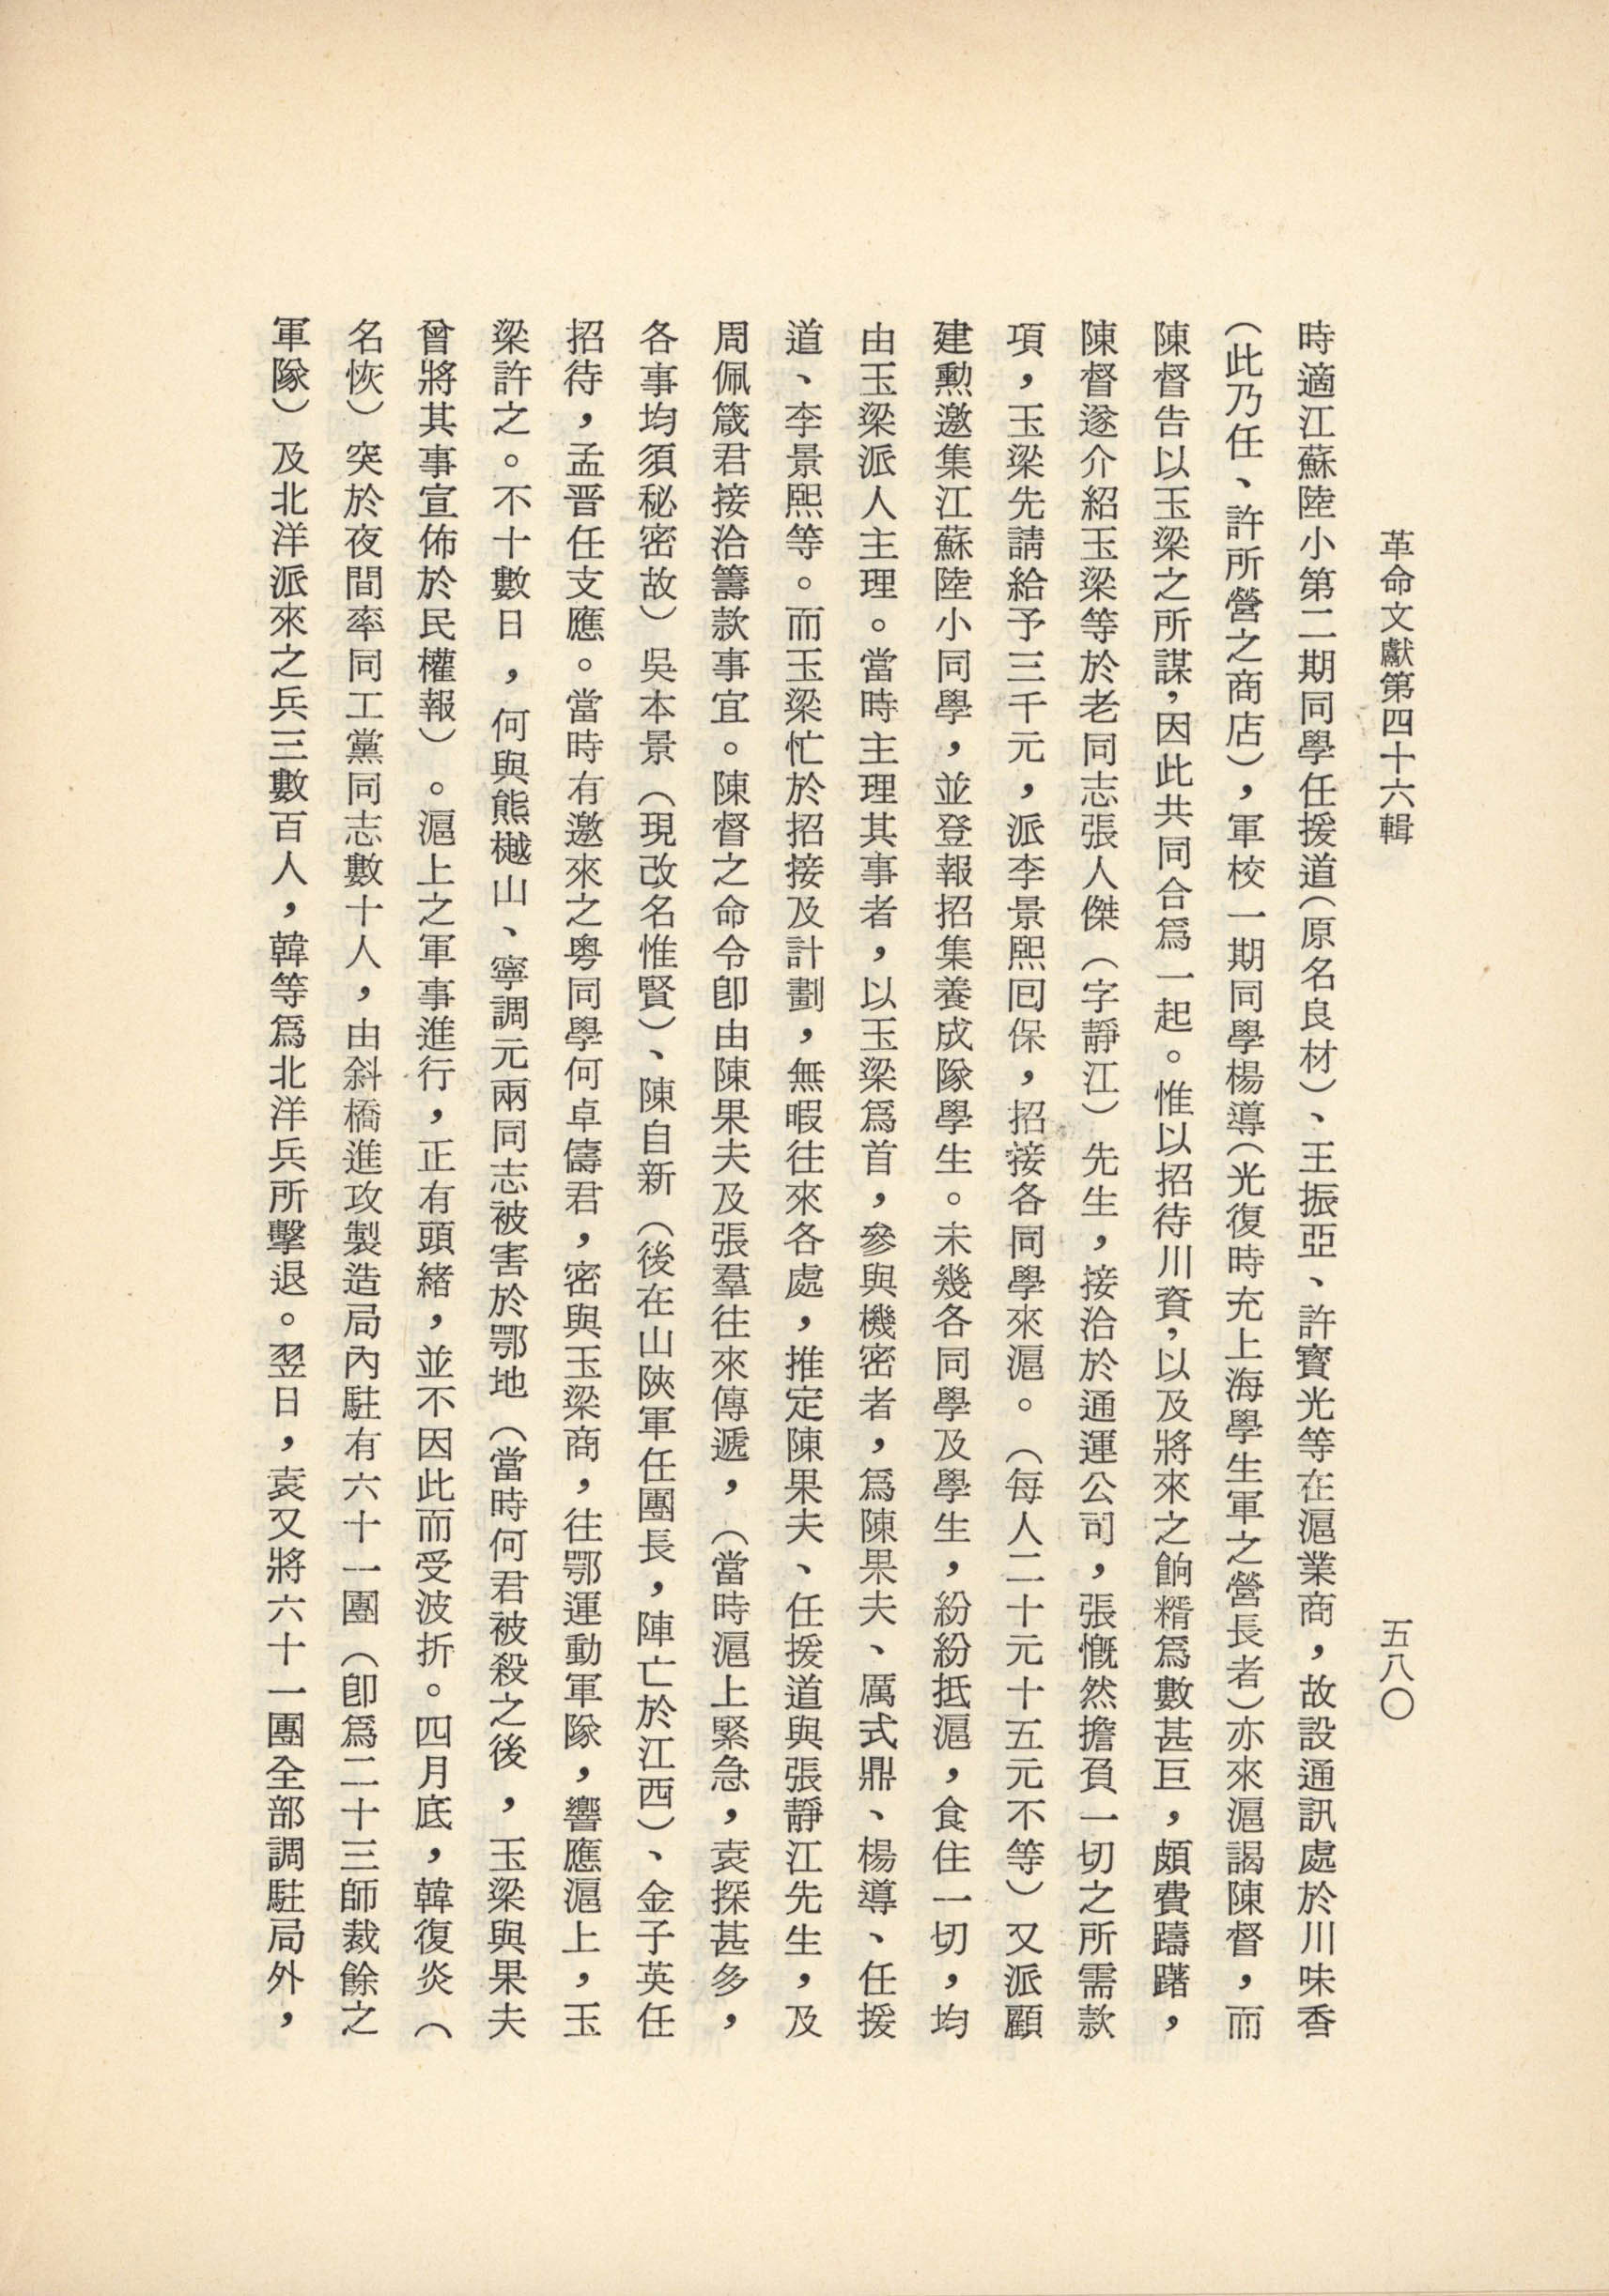 革命文獻第四十六輯
五八〇
時適江蘇陸小第二期同學任援道（原名良材）、王振亞、許寶光等在滬業商，故設通訊處於川味香
（此乃任、許所營之商店），軍校一期同學楊導（光復時充上海學生軍之營長者）亦來滬謁陳督，而
陳督告以玉梁之所謀，因此共同合爲一起。惟以招待川資，以及將來之餉糈爲數甚巨，頗費躊躇，
陳督遂介紹玉梁等於老同志張人傑（字靜江）先生，接洽於通運公司，張慨然擔負一切之所需款
項，玉梁先請給予三千元，派李景熙囘保，招接各同學來滬。（每人二十元十五元不等）又派顧
建勳邀集江蘇陸小同學，並登報招集養成隊學生。未幾各同學及學生，紛紛抵滬，食住一切，均
由玉梁派人主理。當時主理其事者，以玉梁爲首，參與機密者，爲陳果夫、厲式鼎、楊導、任援
道、李景熙等。而玉梁忙於招接及計劃，無暇往來各處，推定陳果夫、任援道與張靜江先生，及
周佩箴君接洽籌款事宜。陳督之命令卽由陳果夫及張羣往來傳遞，（當時滬上緊急，袁探甚多，
各事均須秘密故）吳本景（現改名惟賢）、陳自新（後在山陝軍任團長，陣亡於江西）、金子英任
招待，孟晋任支應。當時有邀來之粵同學何卓儔君，密與玉梁商，往鄂運動軍隊，響應滬上，玉
梁許之。不十數日，何與熊樾山、寧調元兩同志被害於鄂地（當時何君被殺之後，玉梁與果夫
曾將其事宣佈於民權報）。滬上之軍事進行，正有頭緒，並不因此而受波折。四月底，韓復炎（
名恢）突於夜間率同工黨同志數十人，由斜橋進攻製造局內駐有六十一團（卽爲二十三師裁餘之
軍隊）及北洋派來之兵三數百人，韓等爲北洋兵所擊退。翌日，袁又將六十一團全部調駐局外，